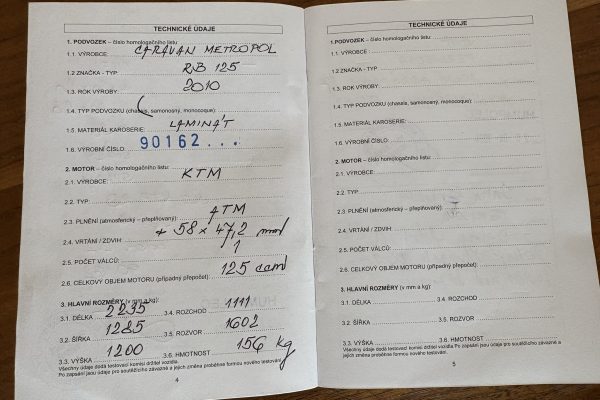 TECHNICKÉ ÚDAJE
1. PODVOZEK – číslo homologačního listu:
1.1. VÝROBCE: CARAVAN METROPOL
1.2 ZNAČKA - TYP: RB 125
1.3. ROK VÝROBY: 2010
1.4. TYP PODVOZKU (chassis, samonosný, monocoque):
1.5. MATERIÁL KAROSERIE: LAMINÁT
1.6. VÝROBNÍ ČÍSLO: 90162...
2. MOTOR – číslo homologačního listu:
2.1. VÝROBCE: KTM
2.2. TYP:
2.3. PLNĚNÍ (atmosferický – přeplňovaný): ATM
2.4. VRTÁNÍ / ZDVIH: + 58 x 47,2 mm
2.5. POČET VÁLCŮ: 1
2.6. CELKOVÝ OBJEM MOTORU (případný přepočet): 125 ccm
3. HLAVNÍ ROZMĚRY (v mm a kg):
3.1. DÉLKA 2235 3.4. ROZCHOD 1111
3.2. ŠÍŘKA 1285 3.5. ROZVOR 1602
3.3. VÝŠKA 1200 3.6. HMOTNOST 156 kg
Všechny údaje dodá testovací komisi držitel vozidla.
Po zapsání jsou údaje pro soutěžícího závazné a jejich změna proběhne formou nového testování.
4
TECHNICKÉ ÚDAJE
1.PODVOZEK - číslo homologačního listu:
1.1. VÝROBCE:
1.2 ZNAČKA - TYP:
1.3. ROK VÝROBY:
1.4. TYP PODVOZKU (chassis, samonosný, monocoque):
1.5. MATERIÁL KAROSERIE:
1.6. VÝROBNÍ ČÍSLO:
2. MOTOR – číslo homologačního listu:
2.1. VÝROBCE:
2.2. TYP:
2.3. PLNĚNÍ (atmosferický – přeplňovaný):
2.4. VRTÁNÍ / ZDVIH:
2.5. POČET VÁLCŮ:
2.6. CELKOVÝ OBJEM MOTORU (případný přepočet):
3. HLAVNÍ ROZMĚRY (v mm a kg):
3.1. DÉLKA 3.4. ROZCHOD
3.2. ŠÍŘKA 3.5. ROZVOR
3.3. VÝŠKA 3.6. HMOTNOST
Všechny údaje dodá testovací komisi držitel vozidla. Po zapsání jsou údaje pro soutěžícího závazné a
jejich změna proběhne formou nového testování.
5